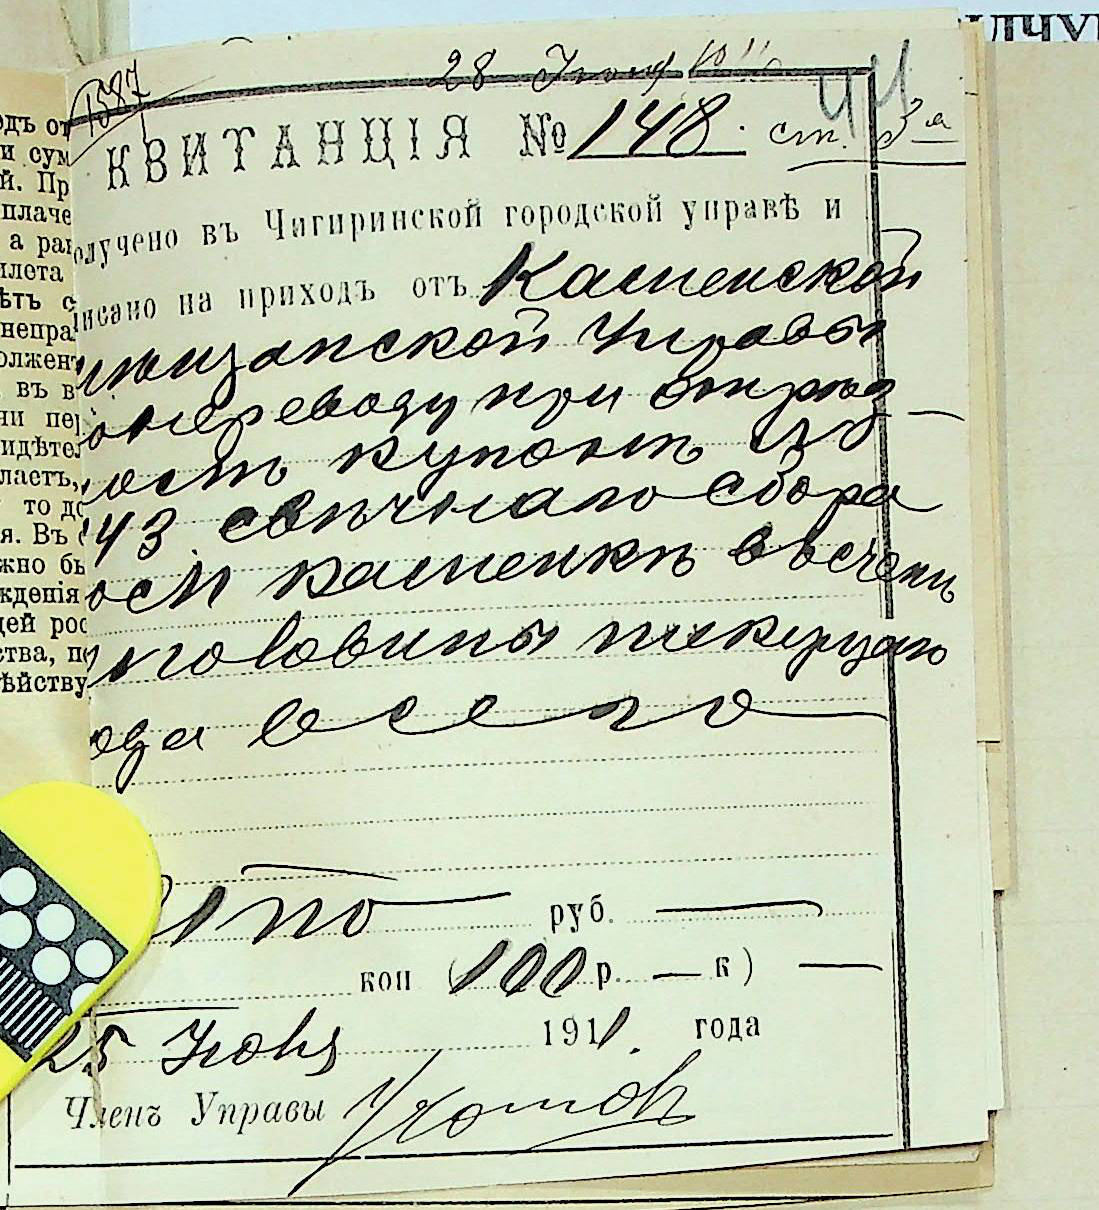 ИЛЧУК
1587
28 Іюня 1911
44
КВИТАНЦІЯ № 148. ст. 3я
олучено въ Чигиринской городской управѣ и
писано на приходъ отъ Каменской
мѣщанской Управы
переводу при
ность купонъ
43 свѣчнаго сбора
Каменкѣ въ теченіи
половины текущаго
ода всего
Сто руб.
коп (100 р. — к)
25 Іюня 1911. года
Членъ Управы
одъ от
и сум
й. Пр
плаче
а ран
илета
ѣтъ с
непра
олжент
въ в
ни пер
идѣтел
ластъ,
то до
я. Въ
жно бы
жденія
щей рос
ства, по
ѣйству